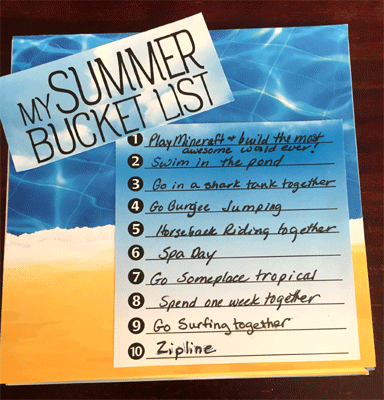 MY SUMMER
BUCKET LIST
1 Play Minecraft & build the most
awesome world ever!
2 Swim in the pond
3 Go in a shark tank together
4 Go Burgee Jumping
5 Horseback Riding together
6 Spa Day
7 Go Someplace tropical
8 Spend one week together
9 Go Surfing together
10 Zipline